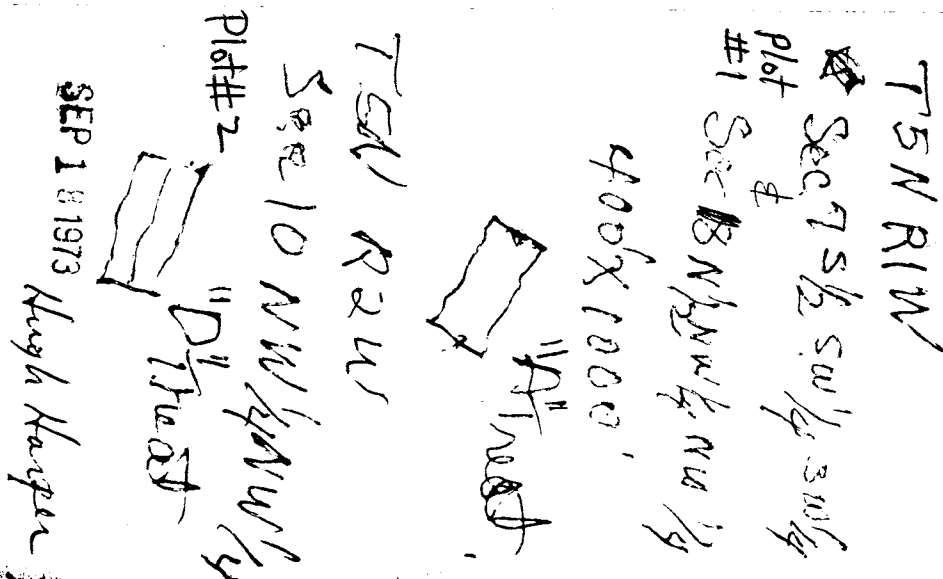 T5N R1W
Sec 7 S 1/2 SW 1/4 SW 1/4
plot #1
&
Sec 18 N/2 NW 1/4 NW 1/4
400' X 1000'
"A" Treat.
T5N R2W
Sec 10 NW 1/4 NW 1/4
Plot #2
"D" Treat
SEP 18 1973
Hugh Harper